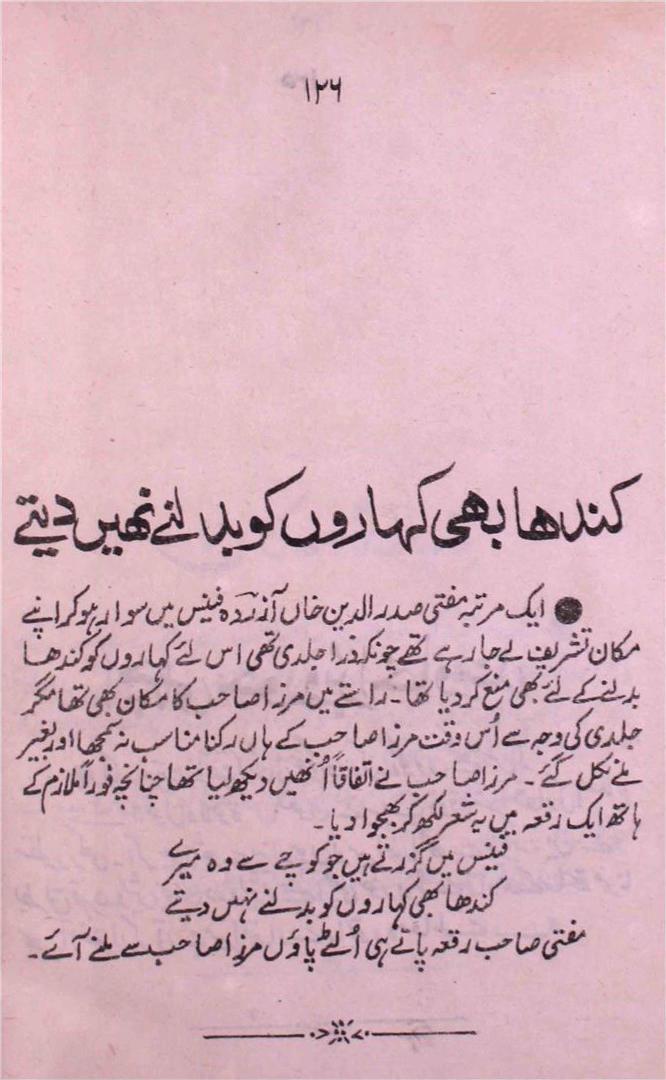 ۱۲۶
کندھا بھی کہاروں کو بدلنے نہیں دیتے
● ایک مرتبہ مفتی صدر الدین خاں آزردہ فینس میں سوار ہو کر اپنے
مکان تشریف لے جا رہے تھے چونکہ ذرا جلدی تھی اس لئے کہاروں کو کندھا
بدلنے کے لئے بھی منع کر دیا تھا۔ راستے میں مرزا صاحب کا مکان بھی تھا مگر
جلدی کی وجہ سے اُس وقت مرزا صاحب کے ہاں رکنا مناسب نہ سمجھا اور بغیر
ملے نکل گئے۔ مرزا صاحب نے اتفاقاً اُنھیں دیکھ لیا تھا چنانچہ فوراً ملازم کے
ہاتھ ایک رقعہ میں یہ شعر لکھ کر بھجوا دیا۔
فینس میں گزرتے ہیں جو کوچے سے وہ میرے
کندھا بھی کہاروں کو بدلنے نہیں دیتے
مفتی صاحب رقعہ پاتے ہی اُلٹے پاؤں مرزا صاحب سے ملنے آئے۔